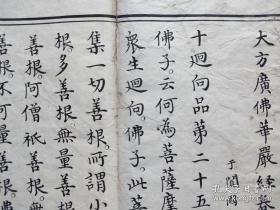 大方廣佛華嚴經
于闐
十迴向品第二十五
佛子。云何為菩薩摩
眾生迴向。佛子。此菩
集一切善根。所謂小
根。多善根。無量善
善根。阿僧祇善根。
善根。不可量